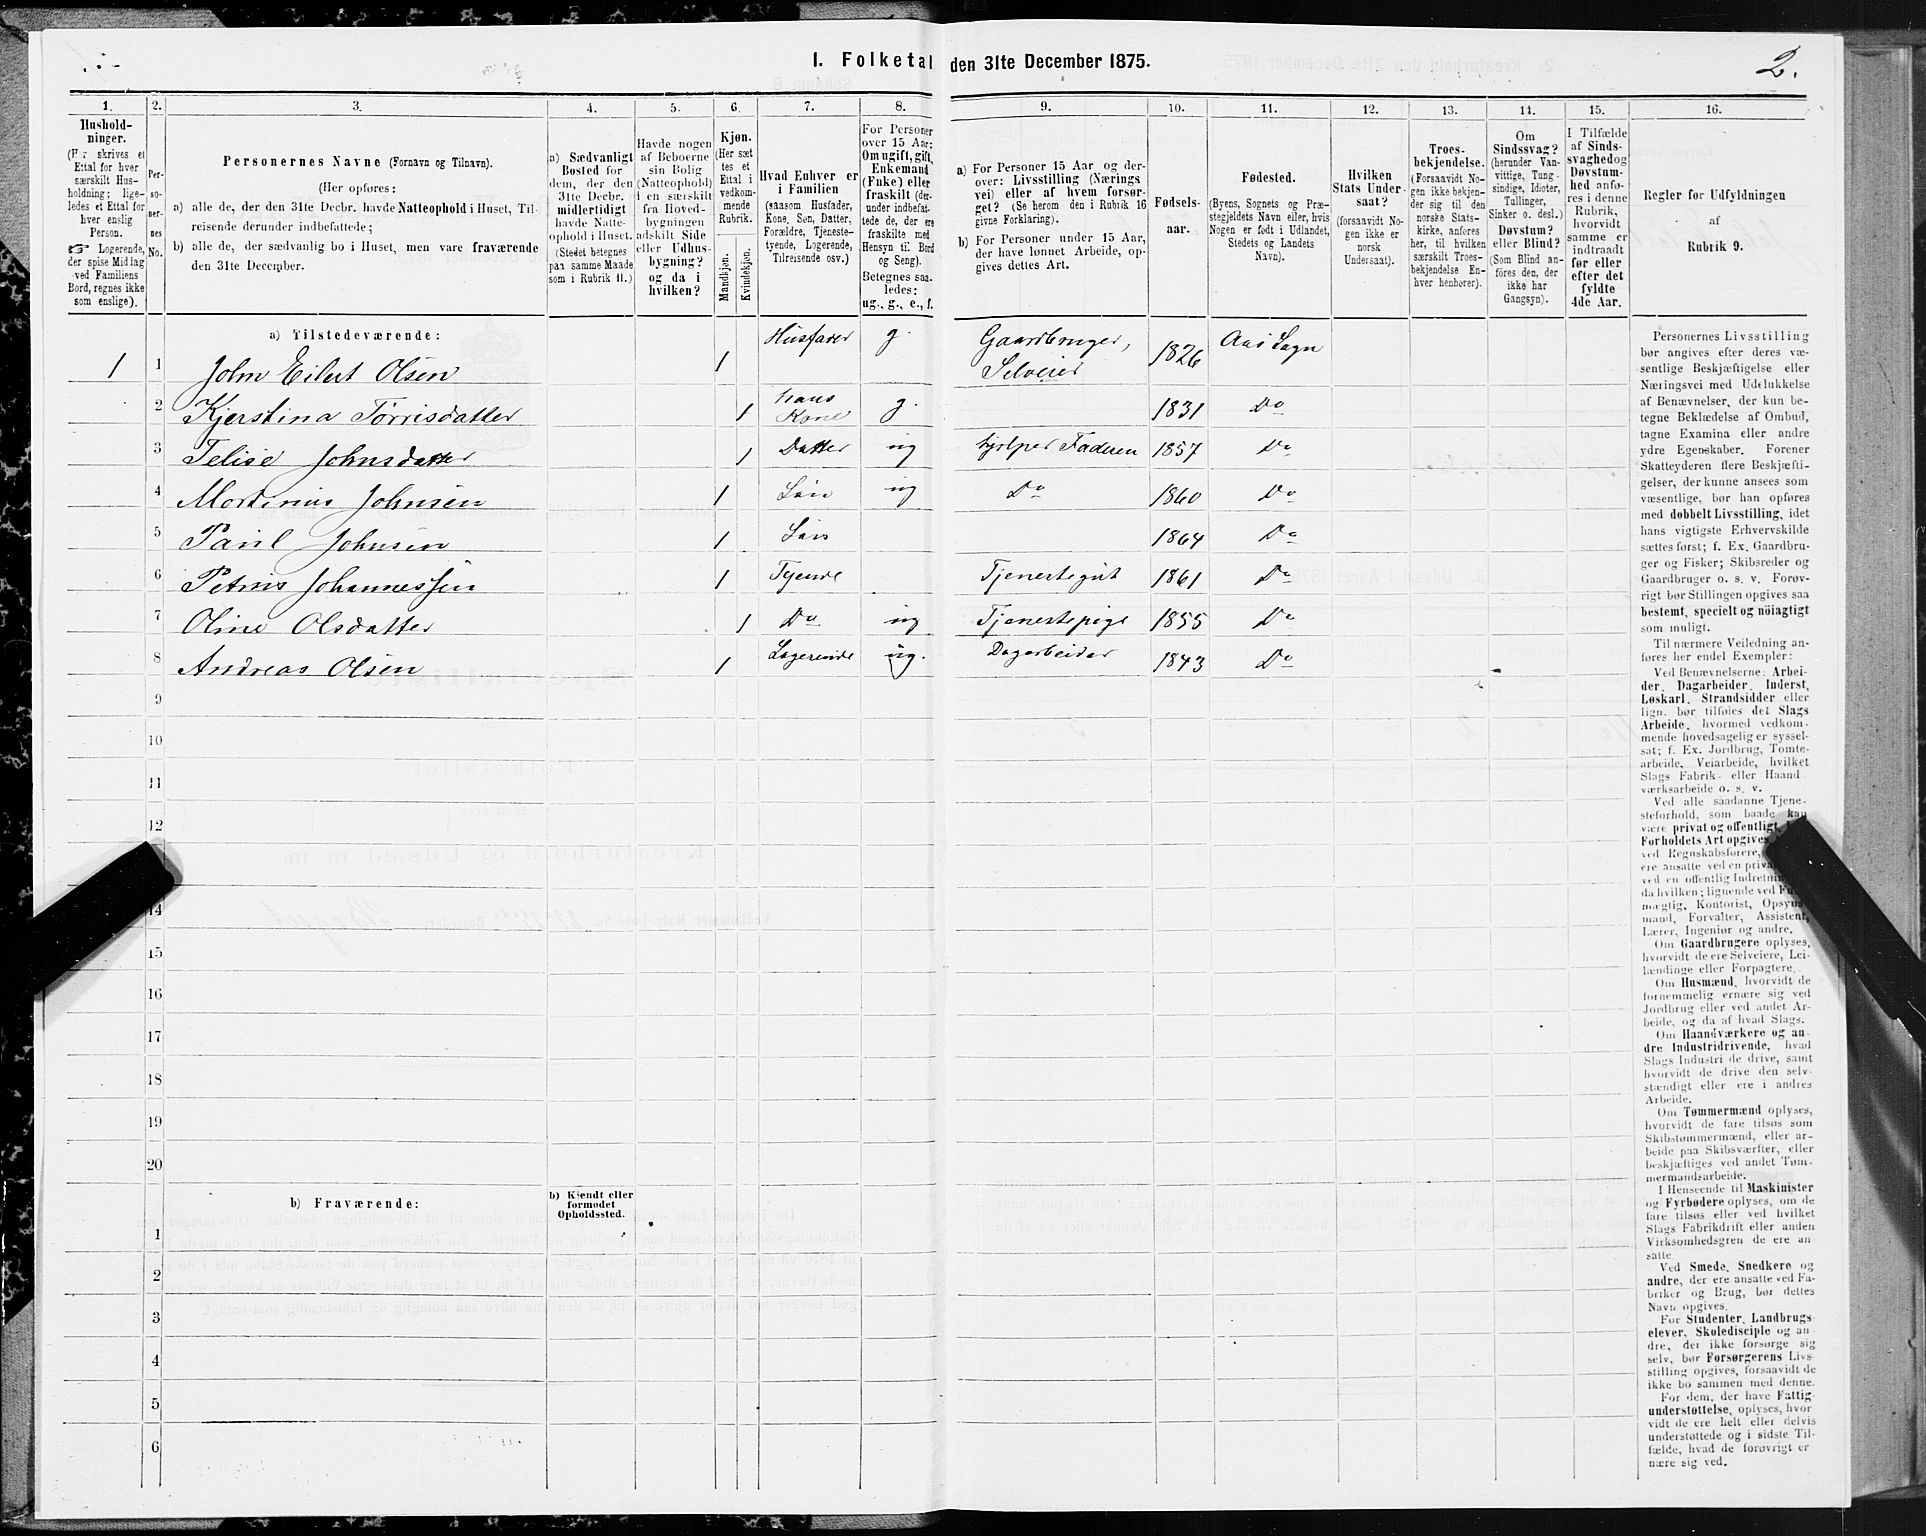 I. Folketal den 31te December 1875.
2.
1.
2.
3.
4.
5.
6.
7.
8.
9.
10.
11.
12.
13.
14.
15.
16.
Hushold-
ninger.
(Her skrives et
Ettal for hver
særskilt Hus-
holdning; lige-
ledes et Ettal for
hver enslig
Person.
☞ Logerende,
der spise Middag
ved Familiens
Bord, regnes ikke
som enslige).
Per-
so-
ner-
nes
No.
Personernes Navne (Fornavn og Tilnavn).
(Her opføres:
a) alle de, der den 31te Decbr. havde Natteophold i Huset, Til-
reisende derunder indbefattede;
b) alle de, der sædvanlig bo i Huset, men vare fraværende
den 31te December.
a) Sædvanligt
Bosted for
dem, der den
31te Decbr.
midlertidigt
havde Natte-
ophold i Huset.
(Stedet betegnes
paa samme Maade
som i Rubrik 11.)
Havde nogen
af Beboerne
sin Bolig
(Natteophold)
i en særskilt
fra Hoved-
bygningen
adskilt Side
eller Udhus-
bygning?
og da i
hvilken?
Kjøn.
(Her sæt
tes et
Ettal i
vedkom-
mende
Rubrik.
Mandkjøn.
Kvindekjøn.
Hvad Enhver er
i Familien
(saasom Husfader,
Kone, Søn, Datter,
Forældre, Tjeneste-
tyende, Logerende,
Tilreisende osv.)
For Personer
over 15 Aar:
Om ugift, gift,
Enkemand
(Enke) eller
fraskilt (der-
under indbefat-
tede de, der ere
fraskilte med
Hensyn til Bord
og Seng).
Betegnes saa-
ledes:
ug., g., e., f.
a) For Personer 15 Aar og der-
over: Livsstilling (Nærings
vei) eller af hvem forsør-
get? (Se herom den i Rubrik 16
givne Forklaring).
b) For Personer under 15 Aar,
der have lønnet Arbeide, op-
gives dettes Art.
Fødsels-
aar.
Fødested.
(Byens, Sognets og Præ-
stegjeldets Navn eller, hvis
Nogen er født i Udlandet,
Stedets og Landets
Navn).
Hvilken
Stats Under-
saat?
(forsaavidt No-
gen ikke er
norsk
Undersaat).
Troes-
bekjendelse.
(Forsaavidt No-
gen ikke bekjen-
der sig til den
norske Stats-
kirke, anføres
her, til hvilken
særskilt Troes-
bekjendelse En-
hver henhører).
Om
Sindssvag?
(herunder Van-
vittige, Tung-
sindige, Idioter,
Tullinger,
Sinker o. desl.)
Døvstum?
eller Blind?
(Som Blind an-
føres den, der
ikke har
Gangsyn).
I Tilfælde
af Sinds-
svaghed og
Døvstum-
hed anfø-
res i denne
Rubrik,
hvorvidt
samme er
indtraadt
før eller
efter det
fyldte
4de Aar.
Regler for Udfyldningen
af
Rubrik 9.
a) Tilstedeværende:
1 1 John Eilert Olsen 1 Husfader g. Gaardbruger, Selveier 1826 Aas Sogn
2 Kjerstina Torrisdatter 1 hans Kone g. 1831 Do
3 Telise Johnsdatter 1 Datter ug hjelper Faderen 1857 Do
4 Mortinius Johnsen 1 Søn ug Do 1860 Do
5 Paul Johnsen 1 Søn 1864 Do
6 Petrus Johannessen 1 Tyende Tjenestegut 1861 Do
7 Oline Olsdatter 1 Do ug Tjenestepige 1855 Do
8 Andreas Olsen 1 Logerende ug. Dagarbeider 1843 Do
9
10
11
12
14
15
16
17
18
19
20
b) Fraværende:
b) Kjendt eller
formodet
Opholdssted.
1
2
3
4
5
6
Personernes Livsstilling
bør angives efter deres væ-
sentlige Beskjæftigelse eller
Næringsvei med Udelukkelse
af Benævnelser, der kun be-
tegne Beklædelse af Ombud,
tagne Examina eller andre
ydre Egenskaber. Forener
Skatteyderen flere Beskjæfti-
gelser, der kunne ansees som
væsentlige, bør han opføres
med dobbelt Livsstilling, idet
hans vigtigste Erhvervskilde
sættes først; f. Ex. Gaardbru-
ger og Fisker; Skibsreder og
Gaardbruger o. s. v. Forøv-
rigt bør Stillingen opgives saa
bestemt, specielt og nöiagtigt
som muligt.
Til nærmere Veiledning an-
føres her endel Exempler:
Ved Benævnelserne: Arbei-
der, Dagarbeider, Inderst,
Løskarl, Strandsidder eller
lign. bør tilføies det Slags
Arbeide, hvormed vedkom-
mende hovedsagelig er syssel-
sat; f. Ex. Jordbrug, Tomte-
arbeide, Veiarbeide, hvilket
Slags Fabrik- eller Haand
værksarbeide o. s. v.
Ved alle saadanne Tjene-
steforhold, som baade kan
være privat og offentligt,
Forholdets Art opgives
ved Regnskabsførere,
ere ansatte ved en
ved en offentlig
da hvilken; lignende ved
mægtig, Kontorist, Opsyns-
mand, Forvalter, Assistent,
Lærer, Ingeniør og andre.
Om Gaardbrugere oplyses,
hvorvidt de ere Selveiere, Lei-
lændinge eller Forpagtere.
Om Husmænd, hvorvidt de
fornemmelig ernære sig ved
Jordbrug eller ved andet Ar-
beide, og da af hvad Slags.
Om Haandværkere og an-
dre Industridrivende, hvad
Slags Industri de drive, samt
hvorvidt de drive den selv-
stændigt eller ere i andres
Arbeide.
Om Tømmermænd oplyses,
hvorvidt de fare tilsøs som
Skibstømmermænd, eller ar-
beide paa Skibsværfter, eller
beskjæftiges ved andet Tøm-
mermandsarbeide.
I Henseende til Maskinister
og Fyrbødere oplyses, om de
fare tilsøs eller ved hvilket
Slags Fabrikdrift eller anden
Virksomhedsgren de ere an-
satte.
Ved Smede, Snedkere og
andre, der ere ansatte ved Fa-
briker og Brug, bør dettes
Navn opgives.
For Studenter, Landbrugs-
elever, Skoledisciple og an-
dre, der ikke forsørge sig
selv, bør Forsørgerens Livs-
stilling opgives, forsaavidt de
ikke bo sammen med denne.
For dem, der have Fattig-
understøttelse, oplyses, hvor
vidt de ere helt eller delvis
understøttede og i sidste Til-
fælde, hvad de forøvrigt er
nære sig ved.